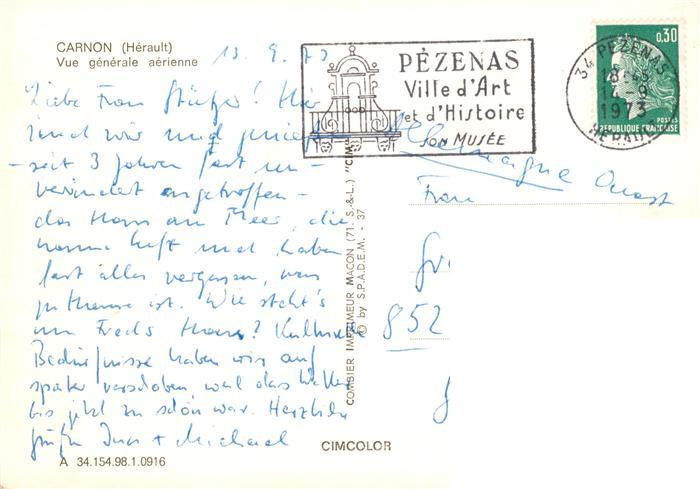 CARNON (Hérault)
Vue générale aérienne
13. 9. 73
Liebe Frau ! Hier
sind wir und genießen
- seit 3 Jahren fast un-
verändert angetroffen -
das Haus am Meer, die
warme Luft und haben
fast alles vergessen, was
zu Hause ist. Wie steht's
um Freds Haus? Kulturelle
Bedürfnisse haben wir auf
später verschoben weil das Wetter
bis jetzt zu schön war. Herzliche
Grüße + Michael
A 34.154.98.1.0916
CIMCOLOR
COMBIER IMPRIMEUR MACON (71. S.-&-L.) "CIM"
© by S.P.A.D.E.M. - 37
PÉZENAS
Ville d'Art
et d'Histoire
SON MUSÉE
34 PEZENAS
18-45
17-9
1973
HERAULT
0,30
POSTES
REPUBLIQUE FRANCAISE
Allemagne Ouest
Frau
852